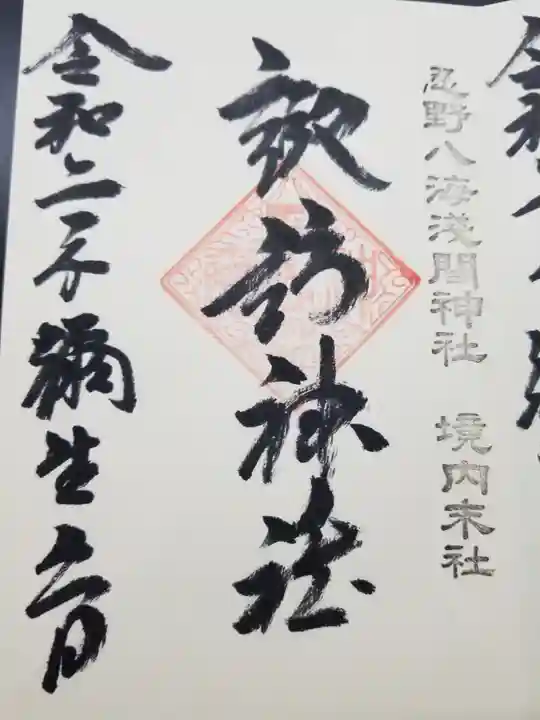 忍野八海淺間神社 境内末社
諏訪神社
令和二年彌生六日